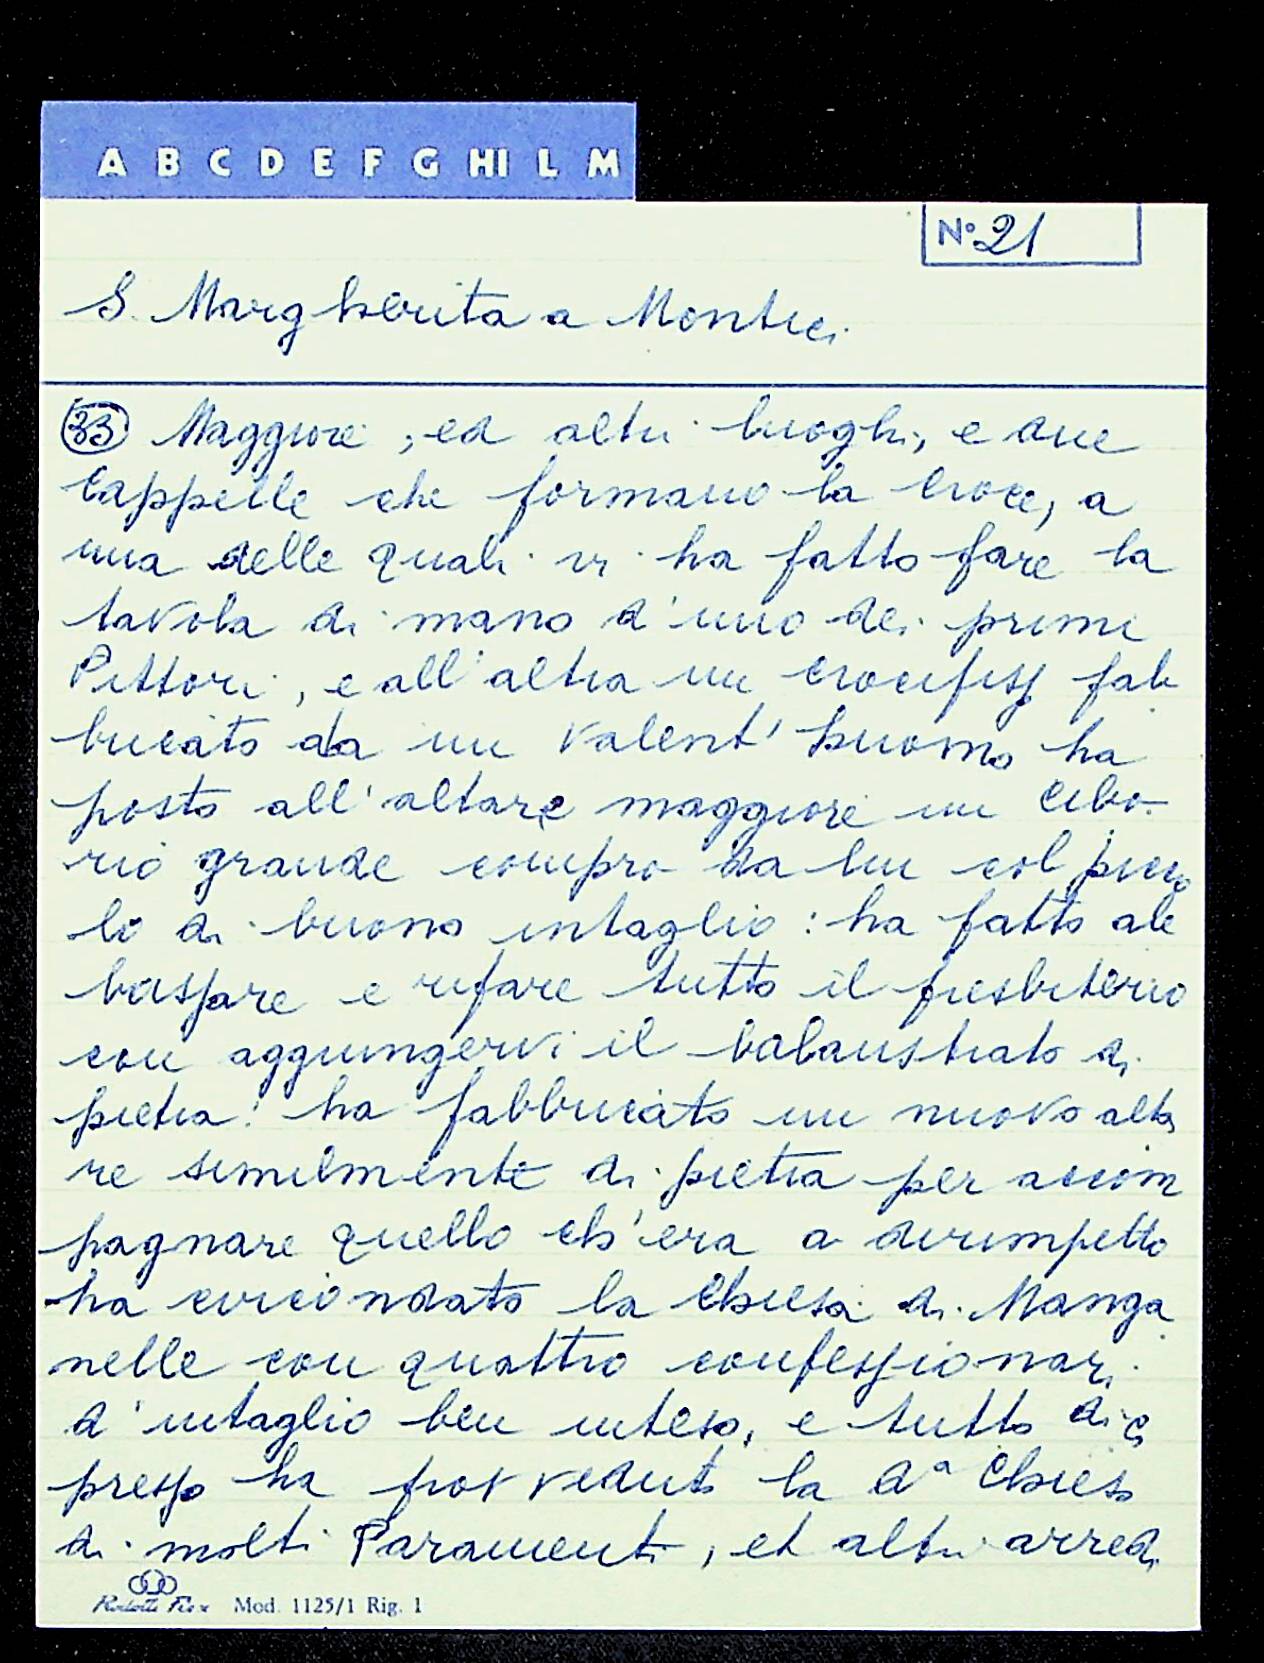 A B C D E F G HI L M
N° 21
S. Margherita a Montici
33 Maggiore, ed altri luoghi, e due
Cappelle che formano la Croce, a
una delle quali vi ha fatto fare la
tavola di mano d'uno dei primi
Pittori, e all'altra un Crocifisso fab
bricato da un valent'huomo ha
posto all'altare maggiore un Cibo-
rio grande compro da lui col picco
lo di buono intaglio: ha fatto
e rifare tutto il presbiterio
con aggiungervi il balaustrato di
pietra: ha fabbricato un nuovo alta
re similmente di pietra per accom
pagnare quello ch'era a dirimpetto
ha circondato la Chiesa di Manga
nelle con quattro confessionari
d'intaglio ben inteso, e tutto di ci
presso ha provveduto la da Chiesa
di molti Paramenti, et altri arredi
Mod. 1125/1 Rig. 1